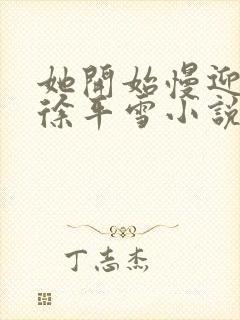 她開始慢迎
徐年雪小說
丁志杰